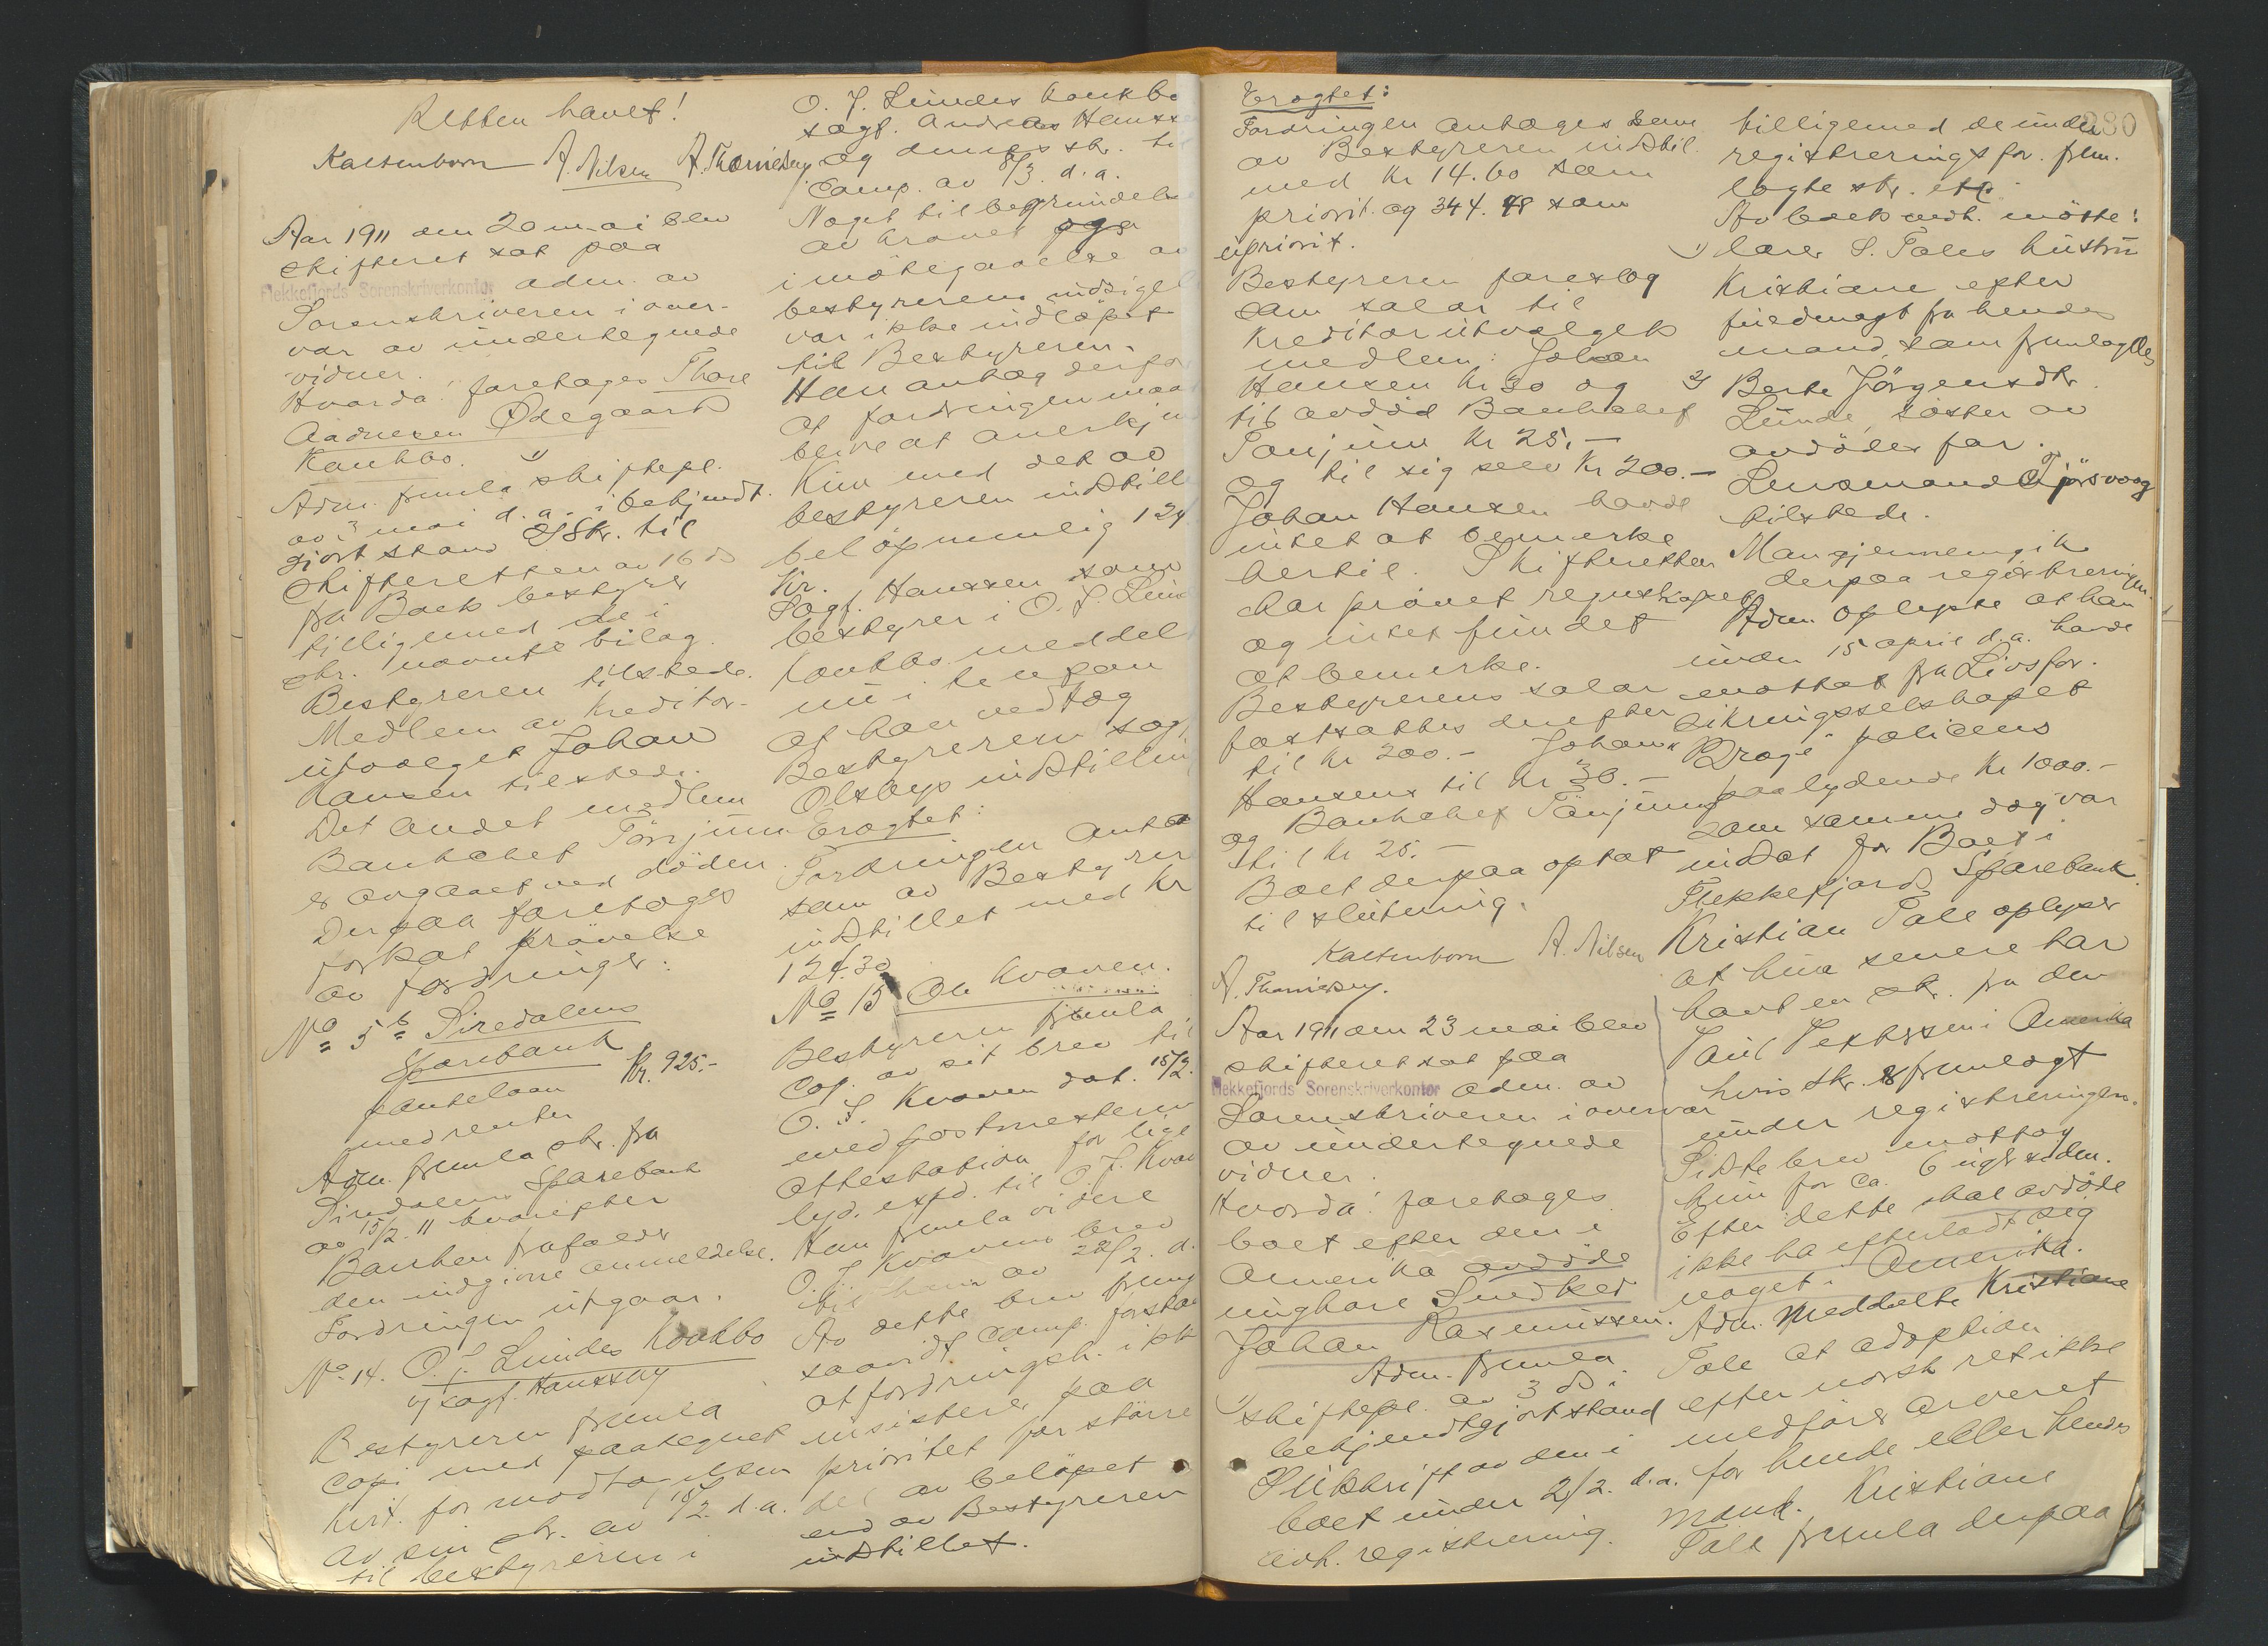 Retten hævet!
Kaltenborn A. Nilsen A. Thomesen
Aar 1911 den 20 mai blev
skifteret sat paa
Flekkefjords Sorenskriverkontor adm. av
Sorenskriveren i over-
vær av undertegnede
vidner.
Hvorda: foretages Thore
Aadnesen Ødegaard
Konkbo.
Adm. fremla 1) skiftepl.
av 3 mai d.a. i bekjendt-
gjort stand 2) Skr. til
skifteretten av 16 ds
fra Boets bestyrer
tilligemed de i
skr. nævnte bilag.
Bestyreren tilstede.
Medlem av Kreditor-
utvalget Johan
Hansen tilstede.
Det andet medlem
Bankchef Tönjum
er avgaaet ved döden.
Derpaa foretoges
forsat prövelse
av fordringer:
No 5 b Siredalens
Sparebank
pantelaan Kr. 925.-
med renter
Adm. fremla skr. fra
Siredalens Sparebank
av 15/2 11 hvorefter
Banken frafalder
den indgivne anmeldelse.
Fordringen utgaar.
No 14. O. J. Lundes Konkbo
v/ sagf. Hanssen
Bestyreren fremla
copi med paategnet
kvit. for modtagelsen
av sin skr. av 15/2 d.a.
til bestyreren i
O. J. Lundes Konkbo
sagf. Andreas Hanss
og dennes skr. til
Comp. av 8/3 d.a.
Noget til begrundelse
av kravet og
imötegaaelse av
bestyrerens indsigel
var ikke indlöpet
til Bestyreren.
Han antog derfor
at fordringen maa
blive at anerkj
Kun med det av
bestyreren indstille
belöp nemlig 124
Kr.
Sagf. Hanssen som
bestyrer i O. J. Lund
Konkbo. meddel
nu i telefon
at han vedtog
Bestyreren sagf.
Olsbys indstilling
Eragtet:
Fordringen anta
som av Bestyrer
indstillet med Kr
124.30
No 15 Ole Kvaven.
Bestyreren fremla
Cop. av sit brev til
O. J. Kvaven dat. 15/2.
med postmesteren
attestation for lige
lyd. expd. til O. J. Kva
Han fremla videre
O. J. Kvavens brev
til ham av 22/2. d.
Av dette brev frem
saavidt Comp. forstaa
at fordringsh. ikk
insisterer paa
prioritet for större
del av belöpet
end av Bestyreren
indstillet.
Eragtet:
Fordringen antages som
av Bestyreren indstil.
med Kr 14.60 som
priorit. og 344.48 som
upriorit.
Bestyreren foreslog
som salar til
Kreditorutvalgets
medlem: Johan
Hansen Kr 30 og
til avdöd Bankchef
Tönjum Kr 25.-
og til sig selv Kr 200.-
Johan Hansen havde
intet at bemerke
hertil. Skifteretten
har prövet regnskapet
og intet fundet
at bemerke.
Bestyrerens salar
fastsattes derefter
til Kr 200.- Johan
Hansens til Kr 30.-
og Bankchef Tönjums
til Kr 25.-
Boet derpaa optat
til slutning.
Kaltenborn A. Nilsen
A. Thomesen.
Aar 1911 den 23 mai blev
skifteret sat paa
Flekkefjords Sorenskriverkontor adm. av
Sorenskriveren i overvær
av undertegnede
vidner.
Hvorda: foretages
boet efter den i
Amerika avdöde
ungkare Snedker
Johan Rasmussen.
Adm. fremla
1) skiftepl. av 3 ds i
bekjendtgjort stand
2) Utskrift av den i
boet under 2/2. d.a.
avh. registrering.
280
tilligemed de under
registreringsfor. frem-
lagte skr. etc.
Av boets vedk. mötte:
1) lærer S. Tales hustru
Kristiane efter
fuldmagt fra hendes
mand, som fremlagdes
2) Berte Jörgensdtr.
Lunde, söster av
avdödes far.
Lensmand Tjörsvaag
tilstede.
Man gjennemgik
derpaa registreringen.
Adm. oplyste at han
under 15 april d.a. havde
mottat fra Livsfor-
sikringsselskapet
"Brage" policens
paalydende Kr 1000.-
som samme dag var
indsat for Boet i
Flekkefjords Sparebank.
Kristian Tale oplyser
at hun senere har
havt en skr. fra den
Paul Pettersen i Amerika
hvis skr. er fremlagt
under registreringen.
Sidste brev mottog
hun for ca. 6 uger siden.
Efter dette skal avdöde
ikke ha efterladt seg
noget i Amerika.
Adm. meddelte Kristiane
Tale at adoption
efter norsk ret ikke
medförer arveret
for hende eller hendes
mand. Kristiane
Tale fremla derpaa